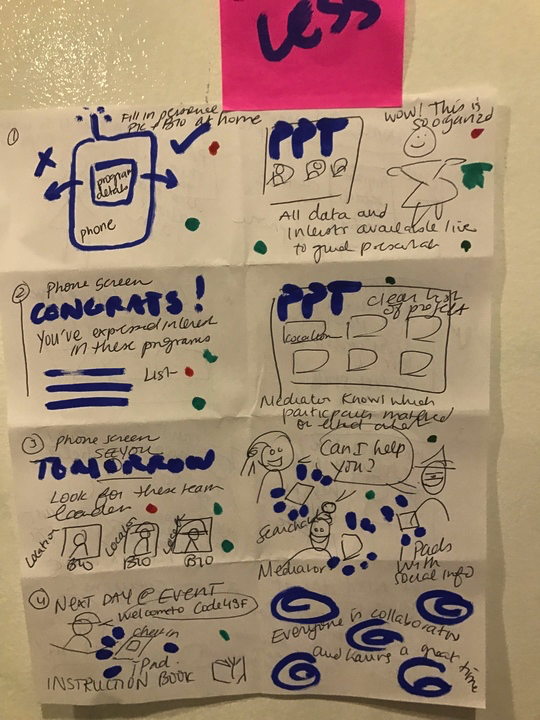 LESS
1
Fill in
PIC + BIO at home
program
details
phone
PPT
WOW! This is
so organized
All data and
interests available live
to guide
2 Phone screen
CONGRATS!
You've expressed interest
in these programs
List
PPT
clear list
of project
Location
Mediator Knows which
participants matched
or
3 Phone screen
SEE YOU
TOMORROW
Look for these team
leaders
Location
Location
BIO
BIO
BIO
Can I help
you?
Mediator
Pads
With
social info
4 NEXT DAY @ EVENT
Welcome to Code4SF
check in
iPad.
INSTRUCTION BOOK
Everyone is
and having a great time